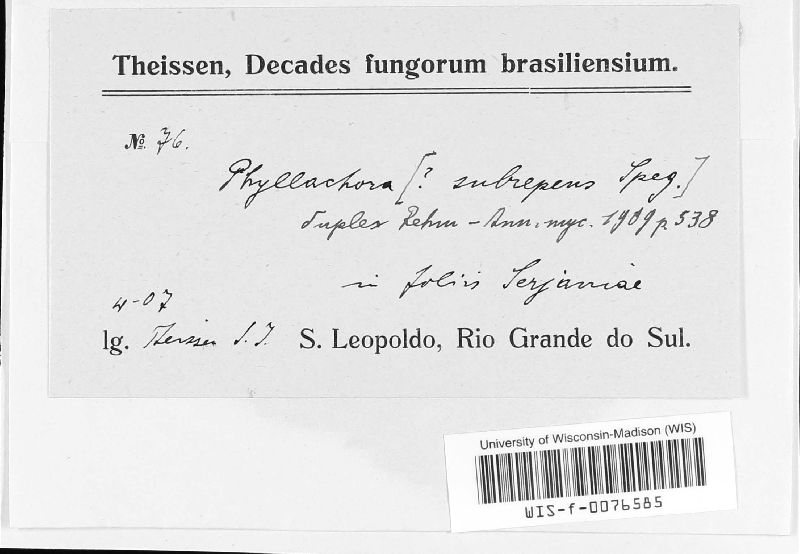 Theissen, Decades fungorum brasiliensium.
№ 76.
Phyllachora [? subrepens Speg.]
duplex Rehm - Ann. myc. 1909 p 538
in foliis Serjaniae
4-07
lg. Theissen S. J. S. Leopoldo, Rio Grande do Sul.
University of Wisconsin-Madison (WIS)
WIS-f-0076585